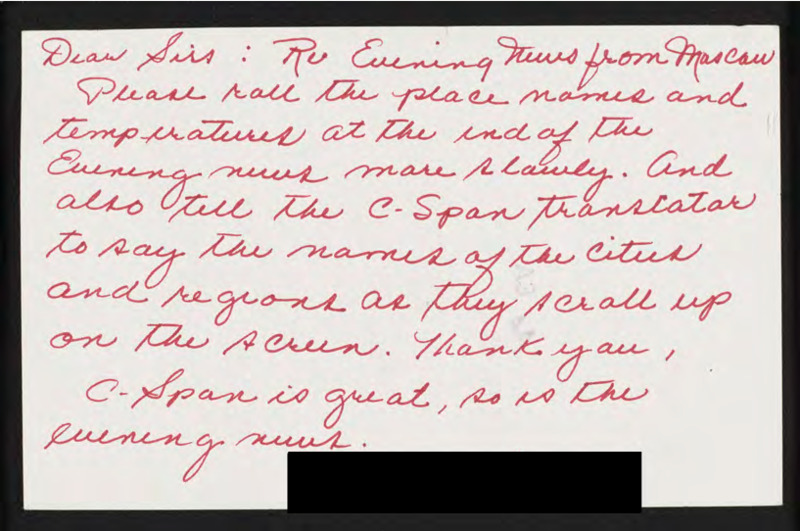 Dear Sirs : Re Evening News from Moscow
Please roll the place names and
temperatures at the end of the
Evening news more slowly. And
also tell the C-Span translator
to say the names of the cities
and regions as they scroll up
on the screen. Thank you,
C-Span is great, so is the
evening news.